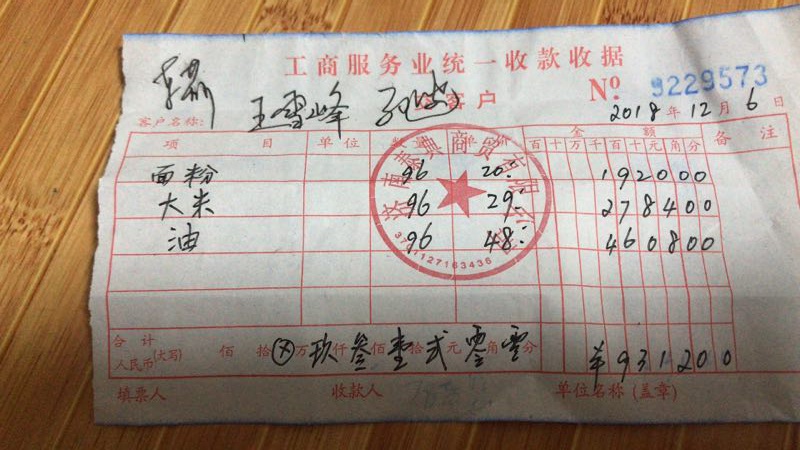 工商服务业统一收款收据
②客户
No. 9229573
客户名称: 王雪峰
2018年12月6日
项目 单位 数量 单价 金额 备注
百十万千百十元角分
面粉 96 20: 192000
大米 96 29: 278400
油 96 48: 460800
合计人民币(大写) 佰拾ⓧ万玖仟叁佰壹拾贰元零角零分 ¥931200
填票人 收款人 单位名称(盖章)
3701127163436